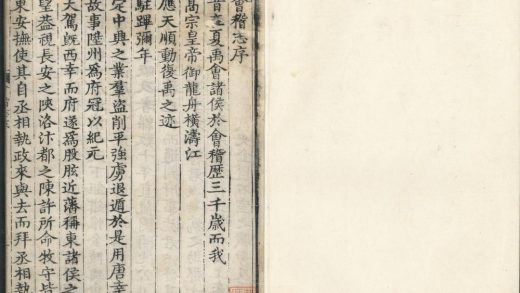 會稽志序
昔在夏禹會諸侯於會稽歷三千歲而我
高宗皇帝御龍舟橫濤江
應天順動復禹之迹
駐蹕彌年
定中興之業羣盜削平強虜退遁於是用唐幸
故事陞州爲府冠以紀元
大駕旣西幸而府遂爲股肱近藩稱東諸侯之
望葢視長安之陝洛汴都之陳許所命牧守皆
東安撫使其自丞相執政來與去而拜丞相執